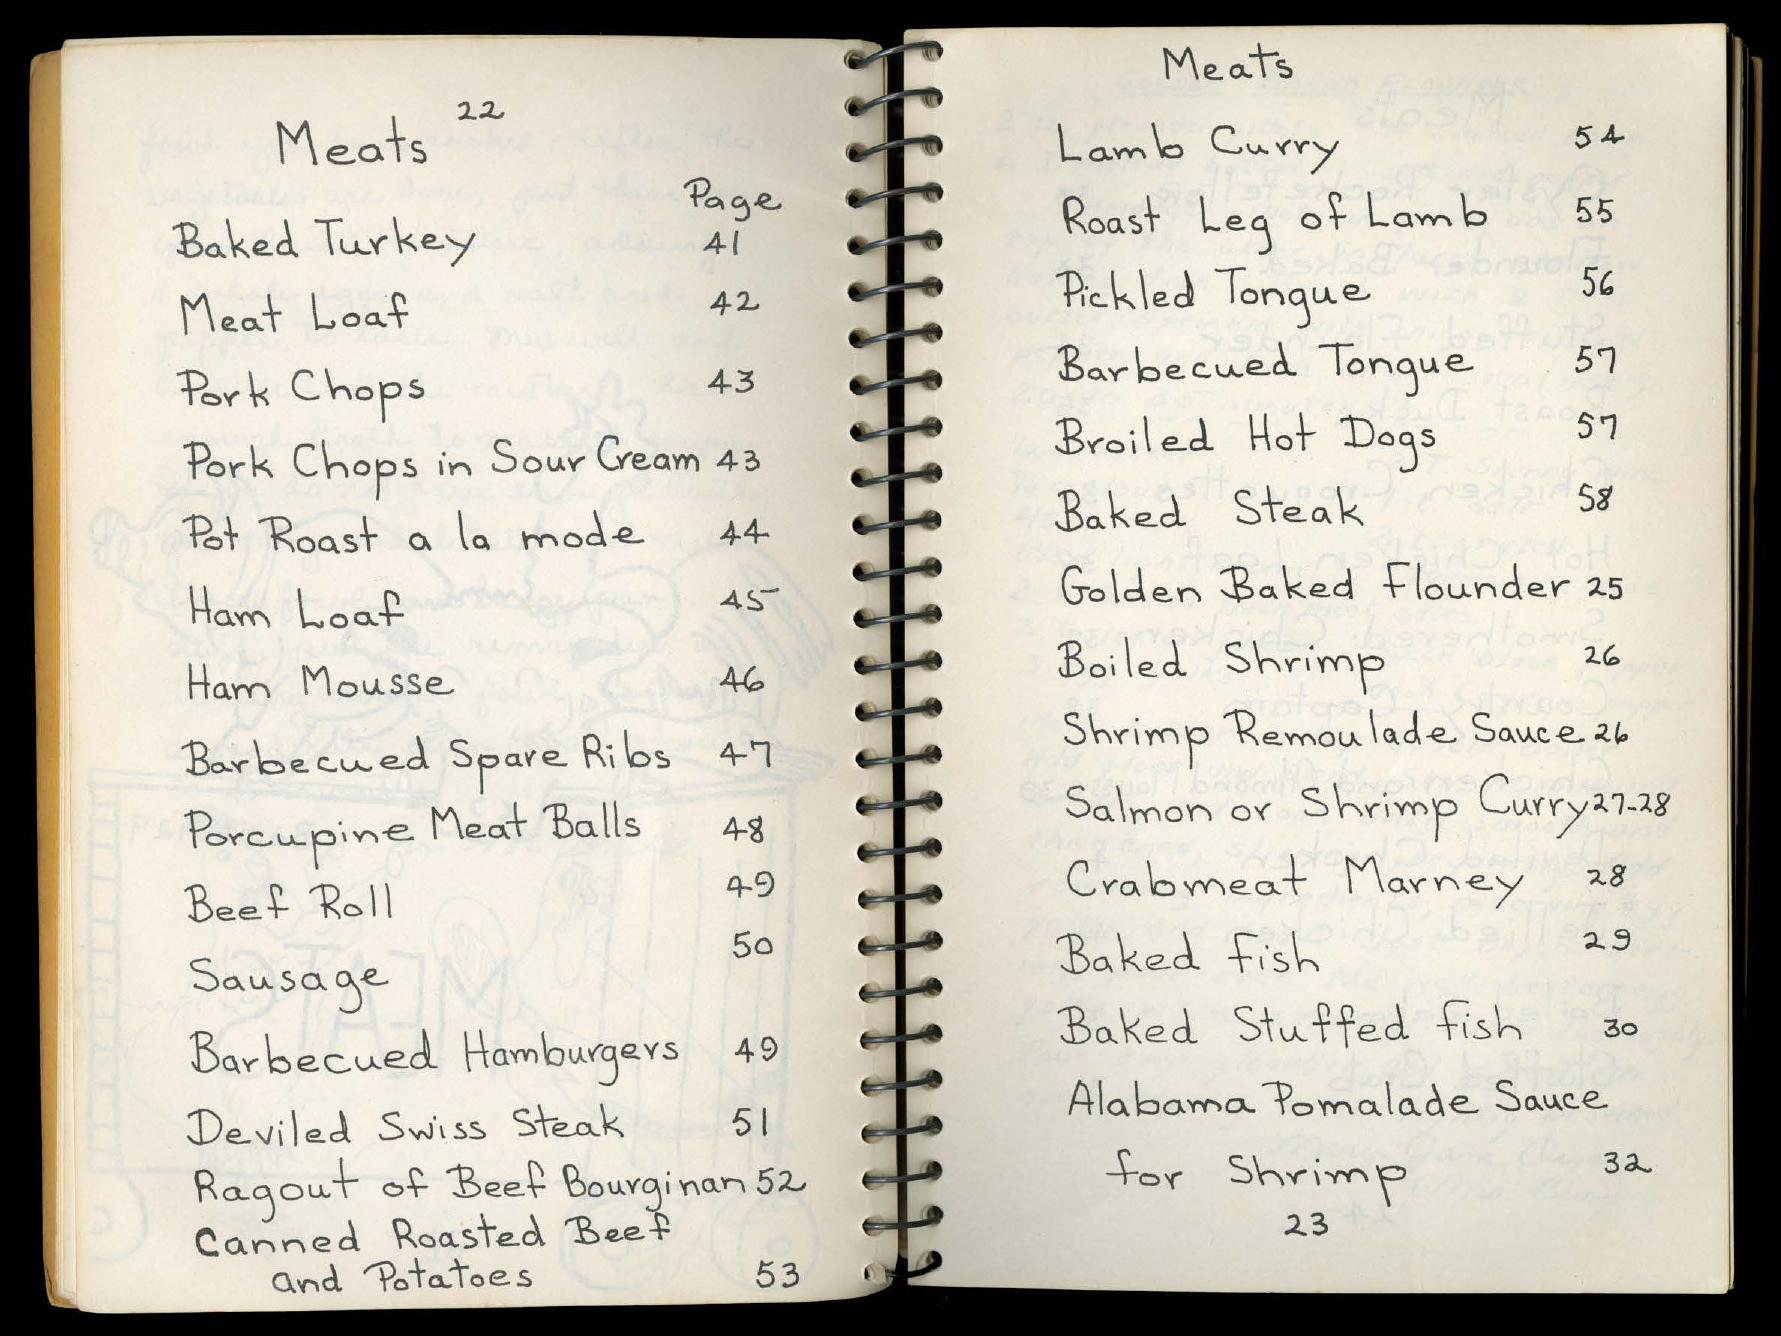 22
Meats
Page
Baked Turkey 41
Meat Loaf 42
Pork Chops 43
Pork Chops in Sour Cream 43
Pot Roast a la mode 44
Ham Loaf 45
Ham Mousse 46
Barbecued Spare Ribs 47
Porcupine Meat Balls 48
Beef Roll 49
Sausage 50
Barbecued Hamburgers 49
Deviled Swiss Steak 51
Ragout of Beef Bourginan 52
Canned Roasted Beef
and Potatoes 53
Meats
Lamb Curry 54
Roast Leg of Lamb 55
Pickled Tongue 56
Barbecued Tongue 57
Broiled Hot Dogs 57
Baked Steak 58
Golden Baked Flounder 25
Boiled Shrimp 26
Shrimp Remoulade Sauce 26
Salmon or Shrimp Curry 27-28
Crabmeat Marney 28
Baked fish 29
Baked Stuffed fish 30
Alabama Pomalade Sauce
for Shrimp 32
23